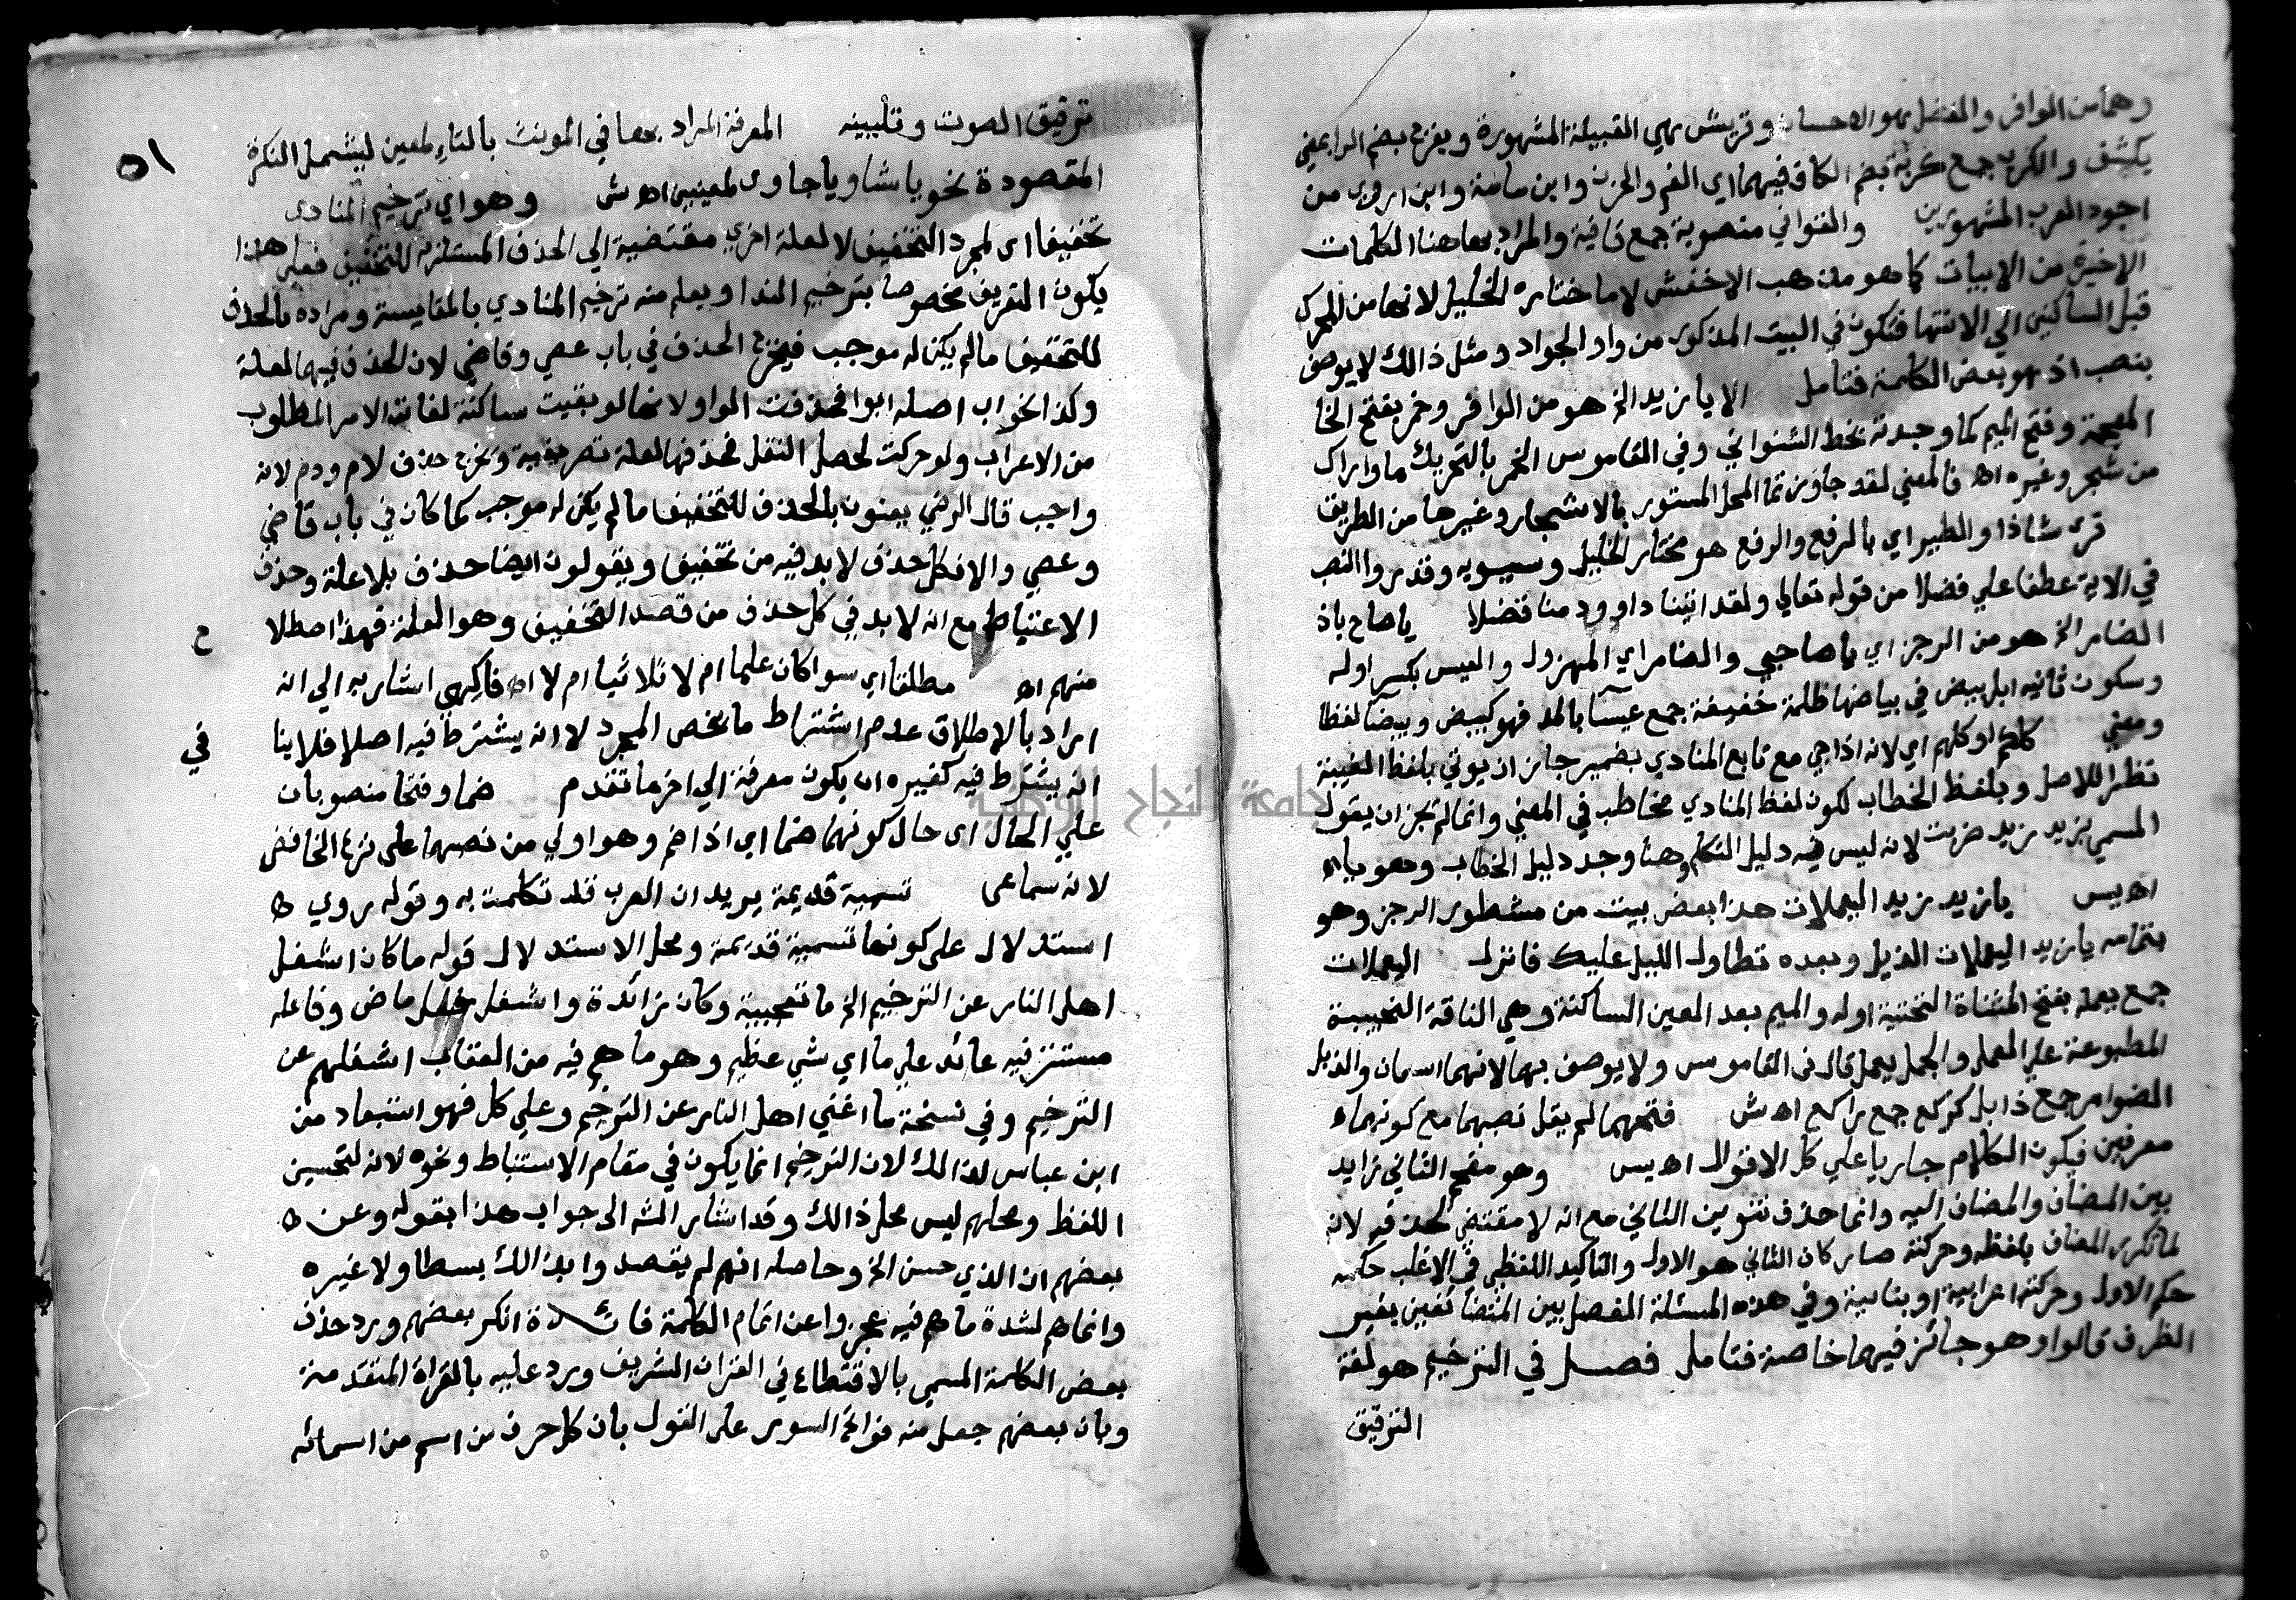 وهما من الوافر والمفضل هو الاحسان وقريش هي القبيلة المشهورة ويفرج بضم الرا بمعني
يكشف والكرب جمع كربة بضم الكاف فيهما اي الغم والحزن وابن مامة وابن اروى من
اجود العرب المشهورين والقوافي منصوبة جمع قافية والمراد بها هنا الكلمات
الاخيرة من الابيات كما هو مذهب الاخفش لا ما ختاره الخليل لانها من المحرك
قبل الساكنين الي الانتها فتكون في البيت المذكور من واو الجواد ومثل ذالك لا يوصف
بنصب اذ هو بعض الكلمة فتامل الا يا زيد الخ هو من الوافر وخمر بفتح الخا
المعجمة وفتح الميم كما وجدته بخط الشنواني وفي القاموس الخمر بالتحريك ما واراك
من شجر وغيره اه فالمعني لقد جاوزتما المحل المستور بالاشجار وغيرها من الطريق
قرى شاذا والطير اي بالرفع والرفع هو مختار الخليل وسيبويه وقدروا النصب
في الاية عطفا علي فضلا من قوله تعالي ولقد اتينا داوود منا فضلا يا صاح ياذ
الضامر الخ هو من الرجز اي يا صاحبي والضامر اي المهزول والعيس بكسر اوله
وسكون ثانيه ابل بيض في بياضها ظلمة خفيفة جمع عيسآ بالمد فهو كبيض وبيضآ لفظا
ومعني كلكم او كلهم اي لانه اذا جي مع تابع المنادي بضمير جاز ان يوتي بلفظ الغيبة
نظرا للاصل وبلفظ الخطاب لكون لفظ المنادي مخاطب في المعني وانما لم تجز ان يقول
المسمي بزيد زيد ضربت لانه ليس فيه دليل التكلم وهنا وجد دليل الخطاب وهو يا
اه يس يا زيد زيد اليعملات هذا بعض بيت من مشطور الرجز وهو
بتمامه يا زيد اليعملات الذبل وبعده تطاول الليل عليك فانزل اليعملات
جمع يعملة بفتح المثناة التحتية اوله والميم بعد العين الساكنة وهي الناقة النجيبة
المطبوعة علي العمل والجمل يعمل قال في القاموس ولا يوصف بهما لانهما اسمان والذبل
الضوامر جمع ذابل كركع جمع راكع اه ش فتحهما لم يقل نصبهما مع كونهما
معرفين فيكون الكلام جاريا علي كل الاقوال اه يس وهو مقحم الثاني زايد
بين المضاف والمضاف اليه وانما حذف تنوين الثاني مع انه لا مقتضي لحذفه لانه
لما تكرر المضاف بلفظه وحركته صار كان الثاني هو الاول والتاكيد اللفظي في الاغلب حكمه
حكم الاول وحركته اعرابية او بنايية وفي هذه المسئلة الفصل بين المتضائفين بغير
الظرف قالوا وهو جائز فيهما خاصة فتامل فصل في الترخيم هو لغة
الترقيق
٥١
ترقيق الصوت وتليينه المعرفة المراد بها في المونث بالتاء لمعين ليشمل النكرة
المقصودة نحو يا شا ويا جاوى لمعينين اه ش وهو اي ترخيم المنادى
تخفيفا اى لمجرد التخفيف لا لعلة اخري مقتضية الي الحذف المستلزم للتخفيف فعلي هذا
يكون التعريف مخصوصا بترخيم الندا ويعلم منه ترخيم المنادي بالمقايسة ومراده بالحذف
للتخفيف ما لم يكن له موجب فيخرج الحذف في باب عصي وقاضي لان الحذف فيها لعلة
وكذا نحو اب اصله ابو فحذفت الواو لانها لو بقيت ساكنة لفات الامر المطلوب
من الاعراب ولو حركت لحصل الثقل فحذفها لعلة تصريفية ويخرج حذف لام ودم لانه
واجب قال الرضي يعنون بالحذف للتخفيف ما لم يكن له موجب كما كان في باب قاضي
وعصي والا فكل حذف لا بد فيه من تخفيف ويقولون ايضا حذف بلا علة وحذف
الاعتباط مع انه لا بد في كل حذف من قصد التخفيف وهو العلة فهذا اصطلا
ح
منهم اه مطلقا اي سوا كان علما ام لا ثلاثيا ام لا اه فاكهي اشار به الي انه
اراد بالاطلاق عدم اشتراط ما يخص المجرد لا انه يشترط فيه اصلا فلا ينا
في
انه يشترط فيه كغيره ان يكون معرفة الي اخر ما تقدم ضما وفتحا منصوبان
علي الحال اى حال كونهما ضما اي اذا ضم وهو اولي من نصبهما علي نزع الخافض
لانه سماعى تسمية قديمة يريد ان العرب قد تكلمت به وقوله روي
استدلال علي كونها تسمية قديمة ومحل الاستدلال قوله ما كان اشغل
اهل النار عن الترخيم الخ ما تعجيبية وكان زائدة واشغل فعل ماض وفاعله
مستتر فيه عائد علي ما اي شي عظيم وهو ما هم فيه من العقاب اشغلهم عن
الترخيم وفي نسخة ما اغني اهل النار عن الترخيم وعلي كل فهو استبعاد من
ابن عباس لذالك لان الترخيم انما يكون في مقام الانبساط ونحوه لانه لتحسين
اللفظ ومحلهم ليس محل ذالك وقد اشار الش الى جواب هذا بقوله وعن
بعضهم ان الذي حسن الخ وحاصله انهم لم يقصدوا بذالك بسطا ولا غيره
وانما هم لشدة ما هم فيه عجزوا عن اتمام الكلمة فائدة انكر بعضهم ورد حذف
بعض الكلمة المسمي بالاقتطاع في القران الشريف ورد عليه بالقراة المتقدمة
وبان بعضهم جعل منه فواتح السور علي القول بان كل حرف من اسم من اسمائه
جامعة النجاح الوطنية